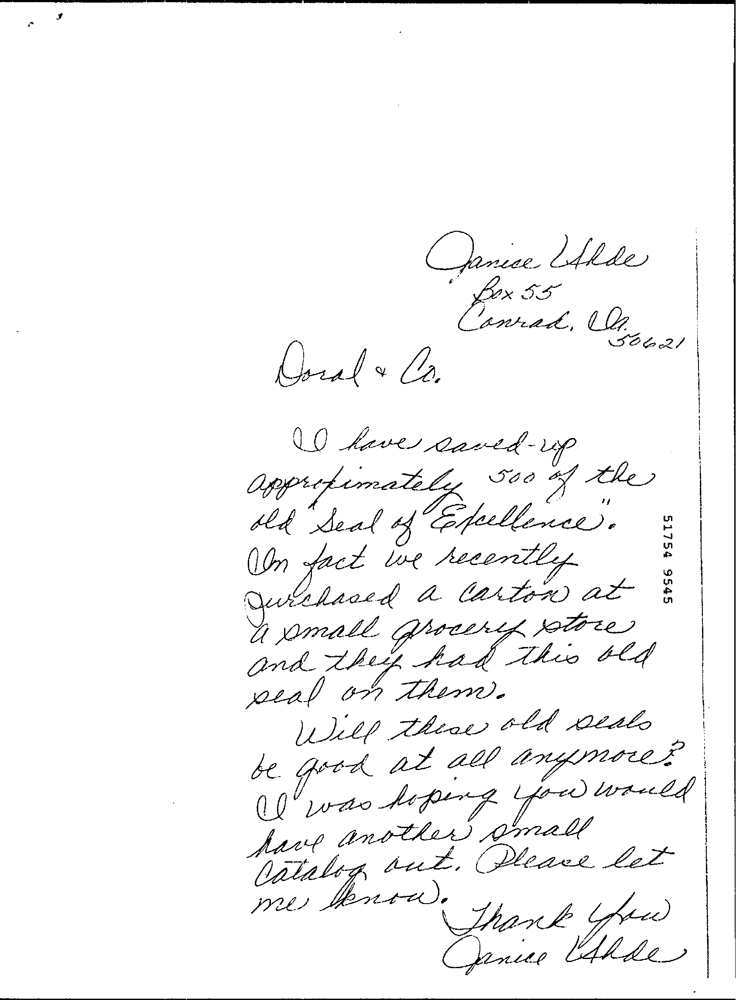 Janice Uhde
Box 55
Conrad, Ia.
50621
Doral & Co.
I have saved-up
approximately 500 of the
old "Seal of Excellence".
In fact we recently
purchased a carton at
a small grocery store
and they had this old
seal on them.
Will these old seals
be good at all anymore?
I was hoping you would
have another small
catalog out. Please let
me know.
Thank You
Janice Uhde
51754 9545